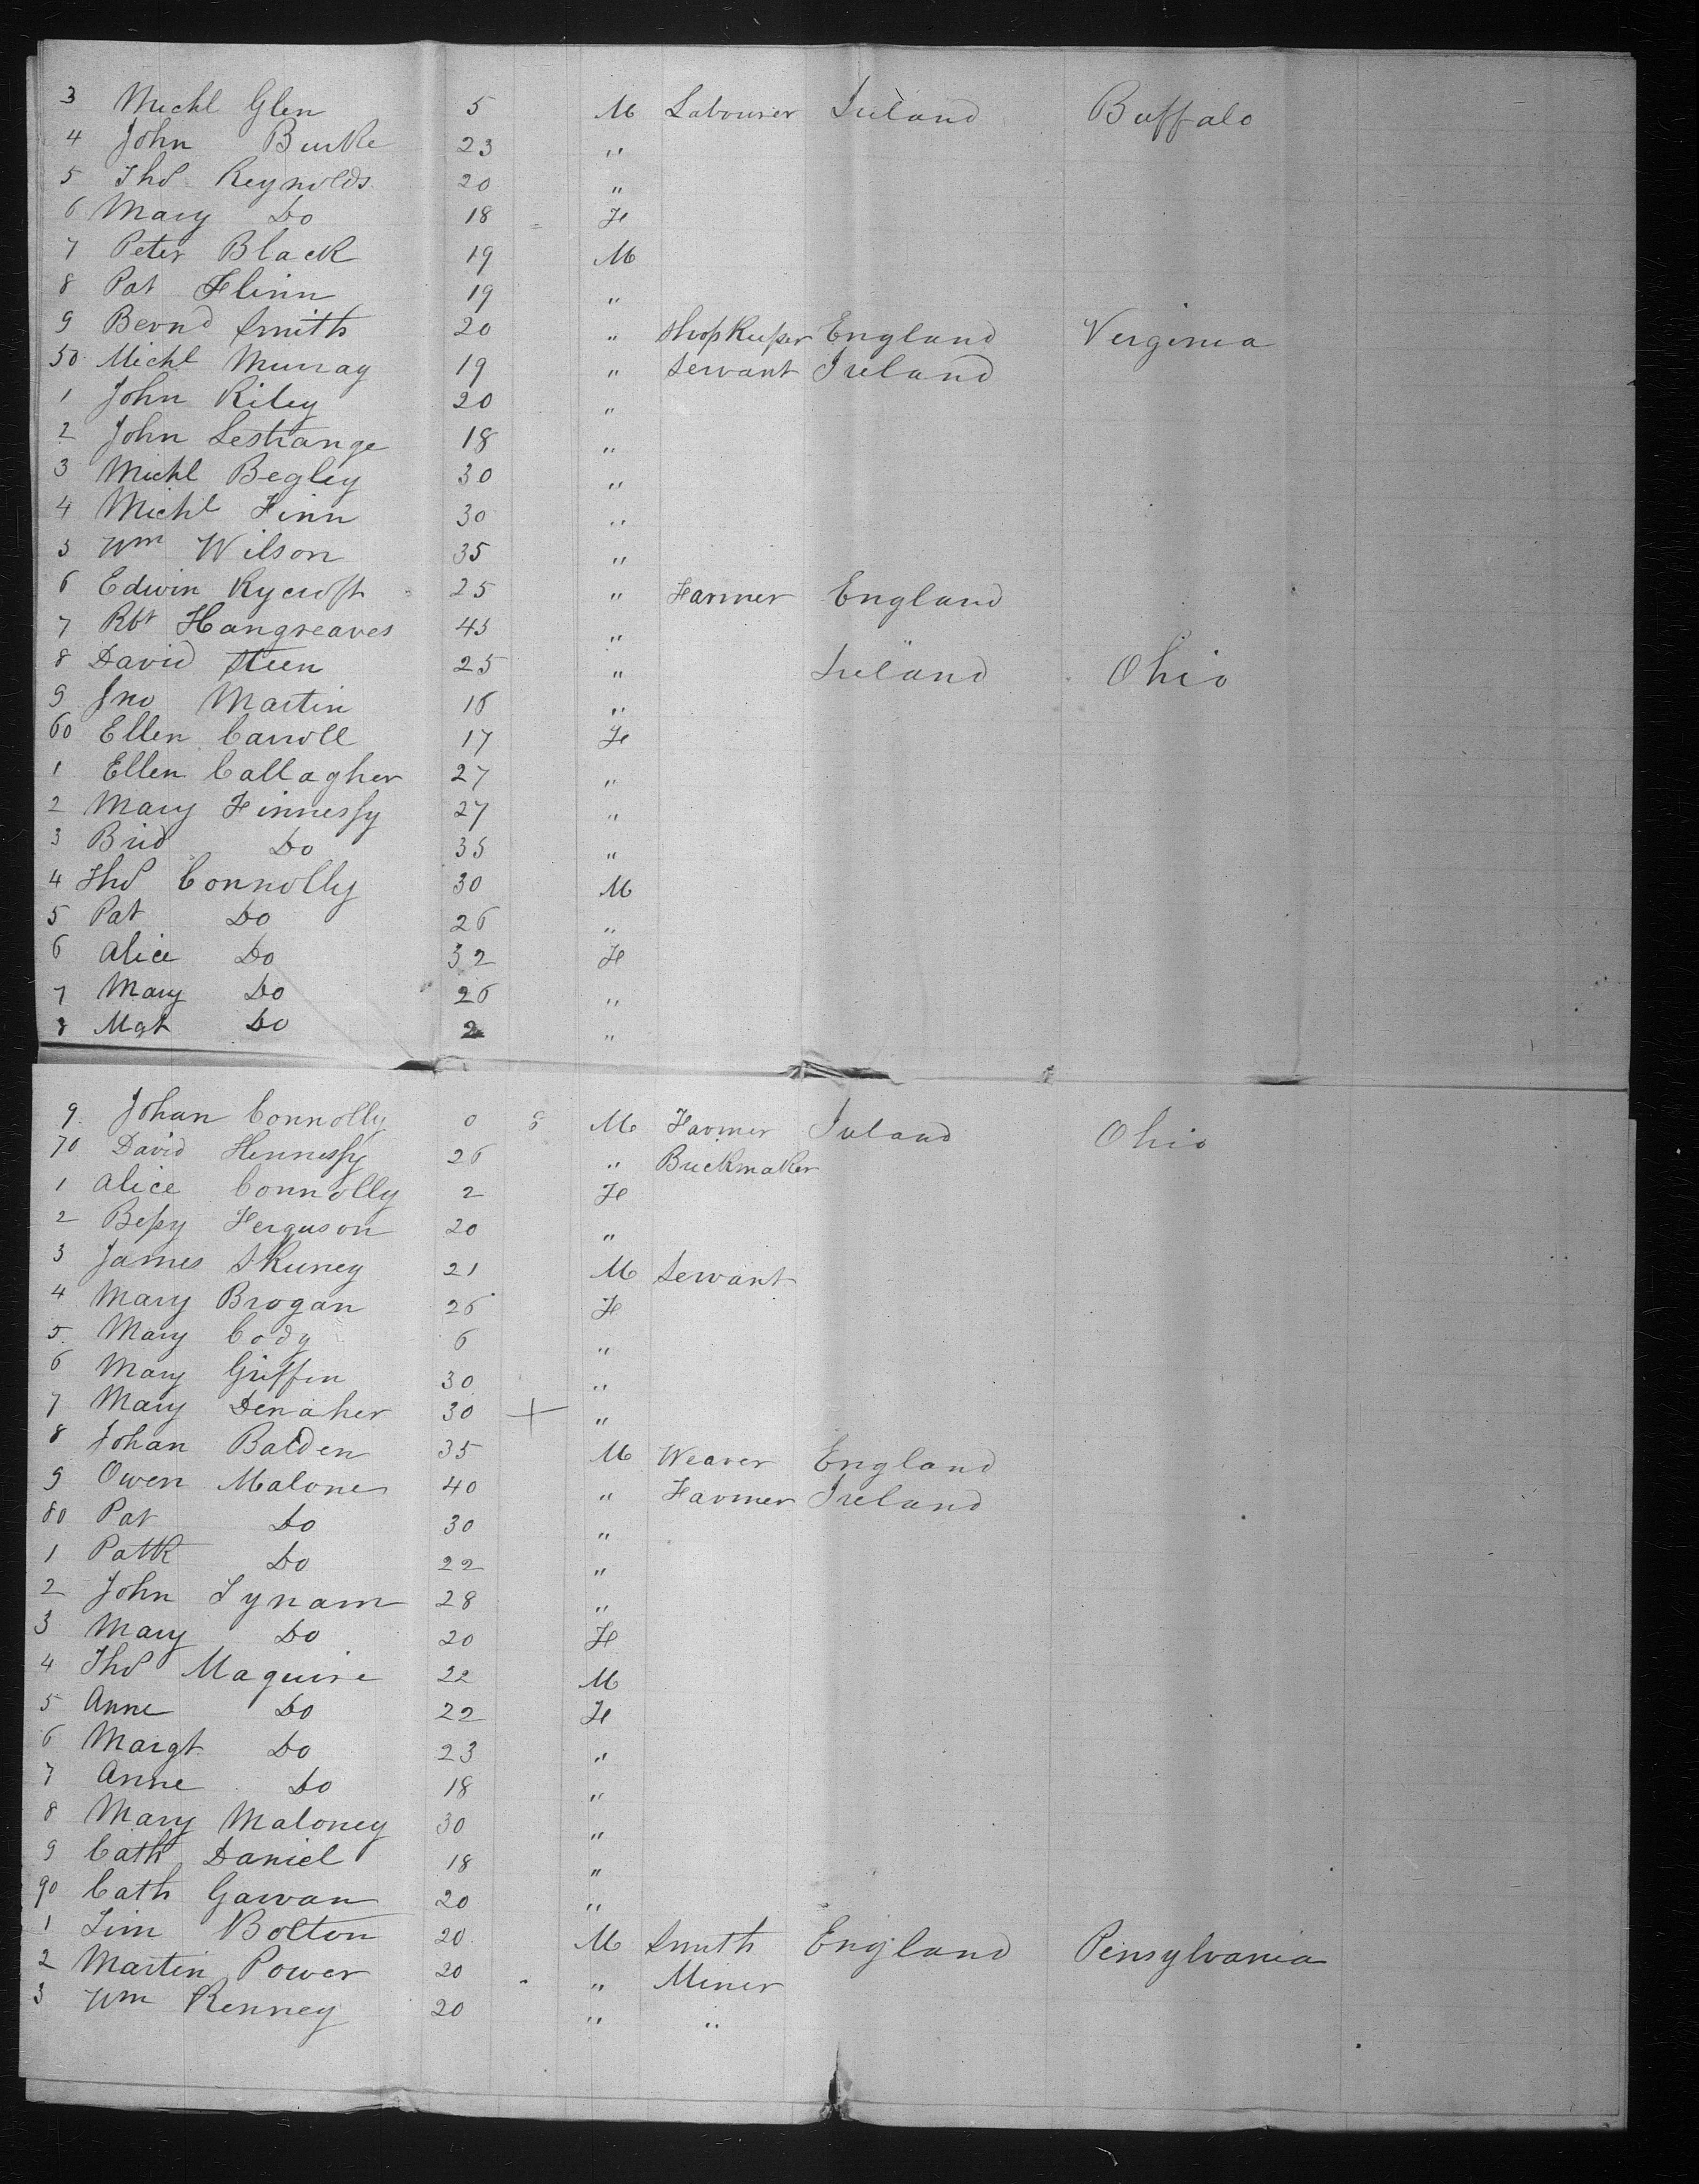 3 Michl Glen 5 M Labourer Ireland Buffalo
4 John Burke 23 "
5 Thos Reynolds 20 "
6 Mary Do 18 F
7 Peter Black 19 M
8 Pat Flinn 19 "
9 Bernd Smith 20 " Shopkeeper England Verginia
50 Michl Murray 19 " Servant Ireland
1 John Riley 20 "
2 John Lestrange 18 "
3 Michl Begley 30 "
4 Michl Finn 30 "
5 Wm Wilson 35 "
6 Edwin Rycroft 25 " Farmer England
7 Rbt Hangreaves 45 "
8 David Steen 25 " Ireland Ohio
9 Jno Martin 16 "
60 Ellen Carroll 17 F
1 Ellen Callagher 27 "
2 Mary Finnessy 27 "
3 Brid Do 35 "
4 Thos Connolly 30 M
5 Pat Do 26 "
6 Alice Do 32 F
7 Mary Do 26 "
8 Mgt Do 2 "
9 Johan Connolly 0 M Farmer Ireland Ohio
70 David Hennessy 26 " Brickmaker
1 Alice Connolly 2 F
2 Bessy Ferguson 20 "
3 James Skuney 21 M Servant
4 Mary Brogan 26 F
5 Mary Cody 6 "
6 Mary Griffin 30 "
7 Mary Denaher 30 + "
8 Johan Balden 35 M Weaver England
9 Owen Malone 40 " Farmer Ireland
80 Pat Do 30 "
1 Patk Do 22 "
2 John Lynam 28 "
3 Mary Do 20 F
4 Thos Maguire 22 M
5 Anne Do 22 F
6 Margt Do 23 "
7 Anne Do 18 "
8 Mary Maloney 30 "
9 Cath Daniel 18 "
90 Cath Garvan 20 "
1 Jim Bolton 20 M Smith England Pensylvania
2 Martin Power 20 " Miner
3 Wm Kenney 20 " "